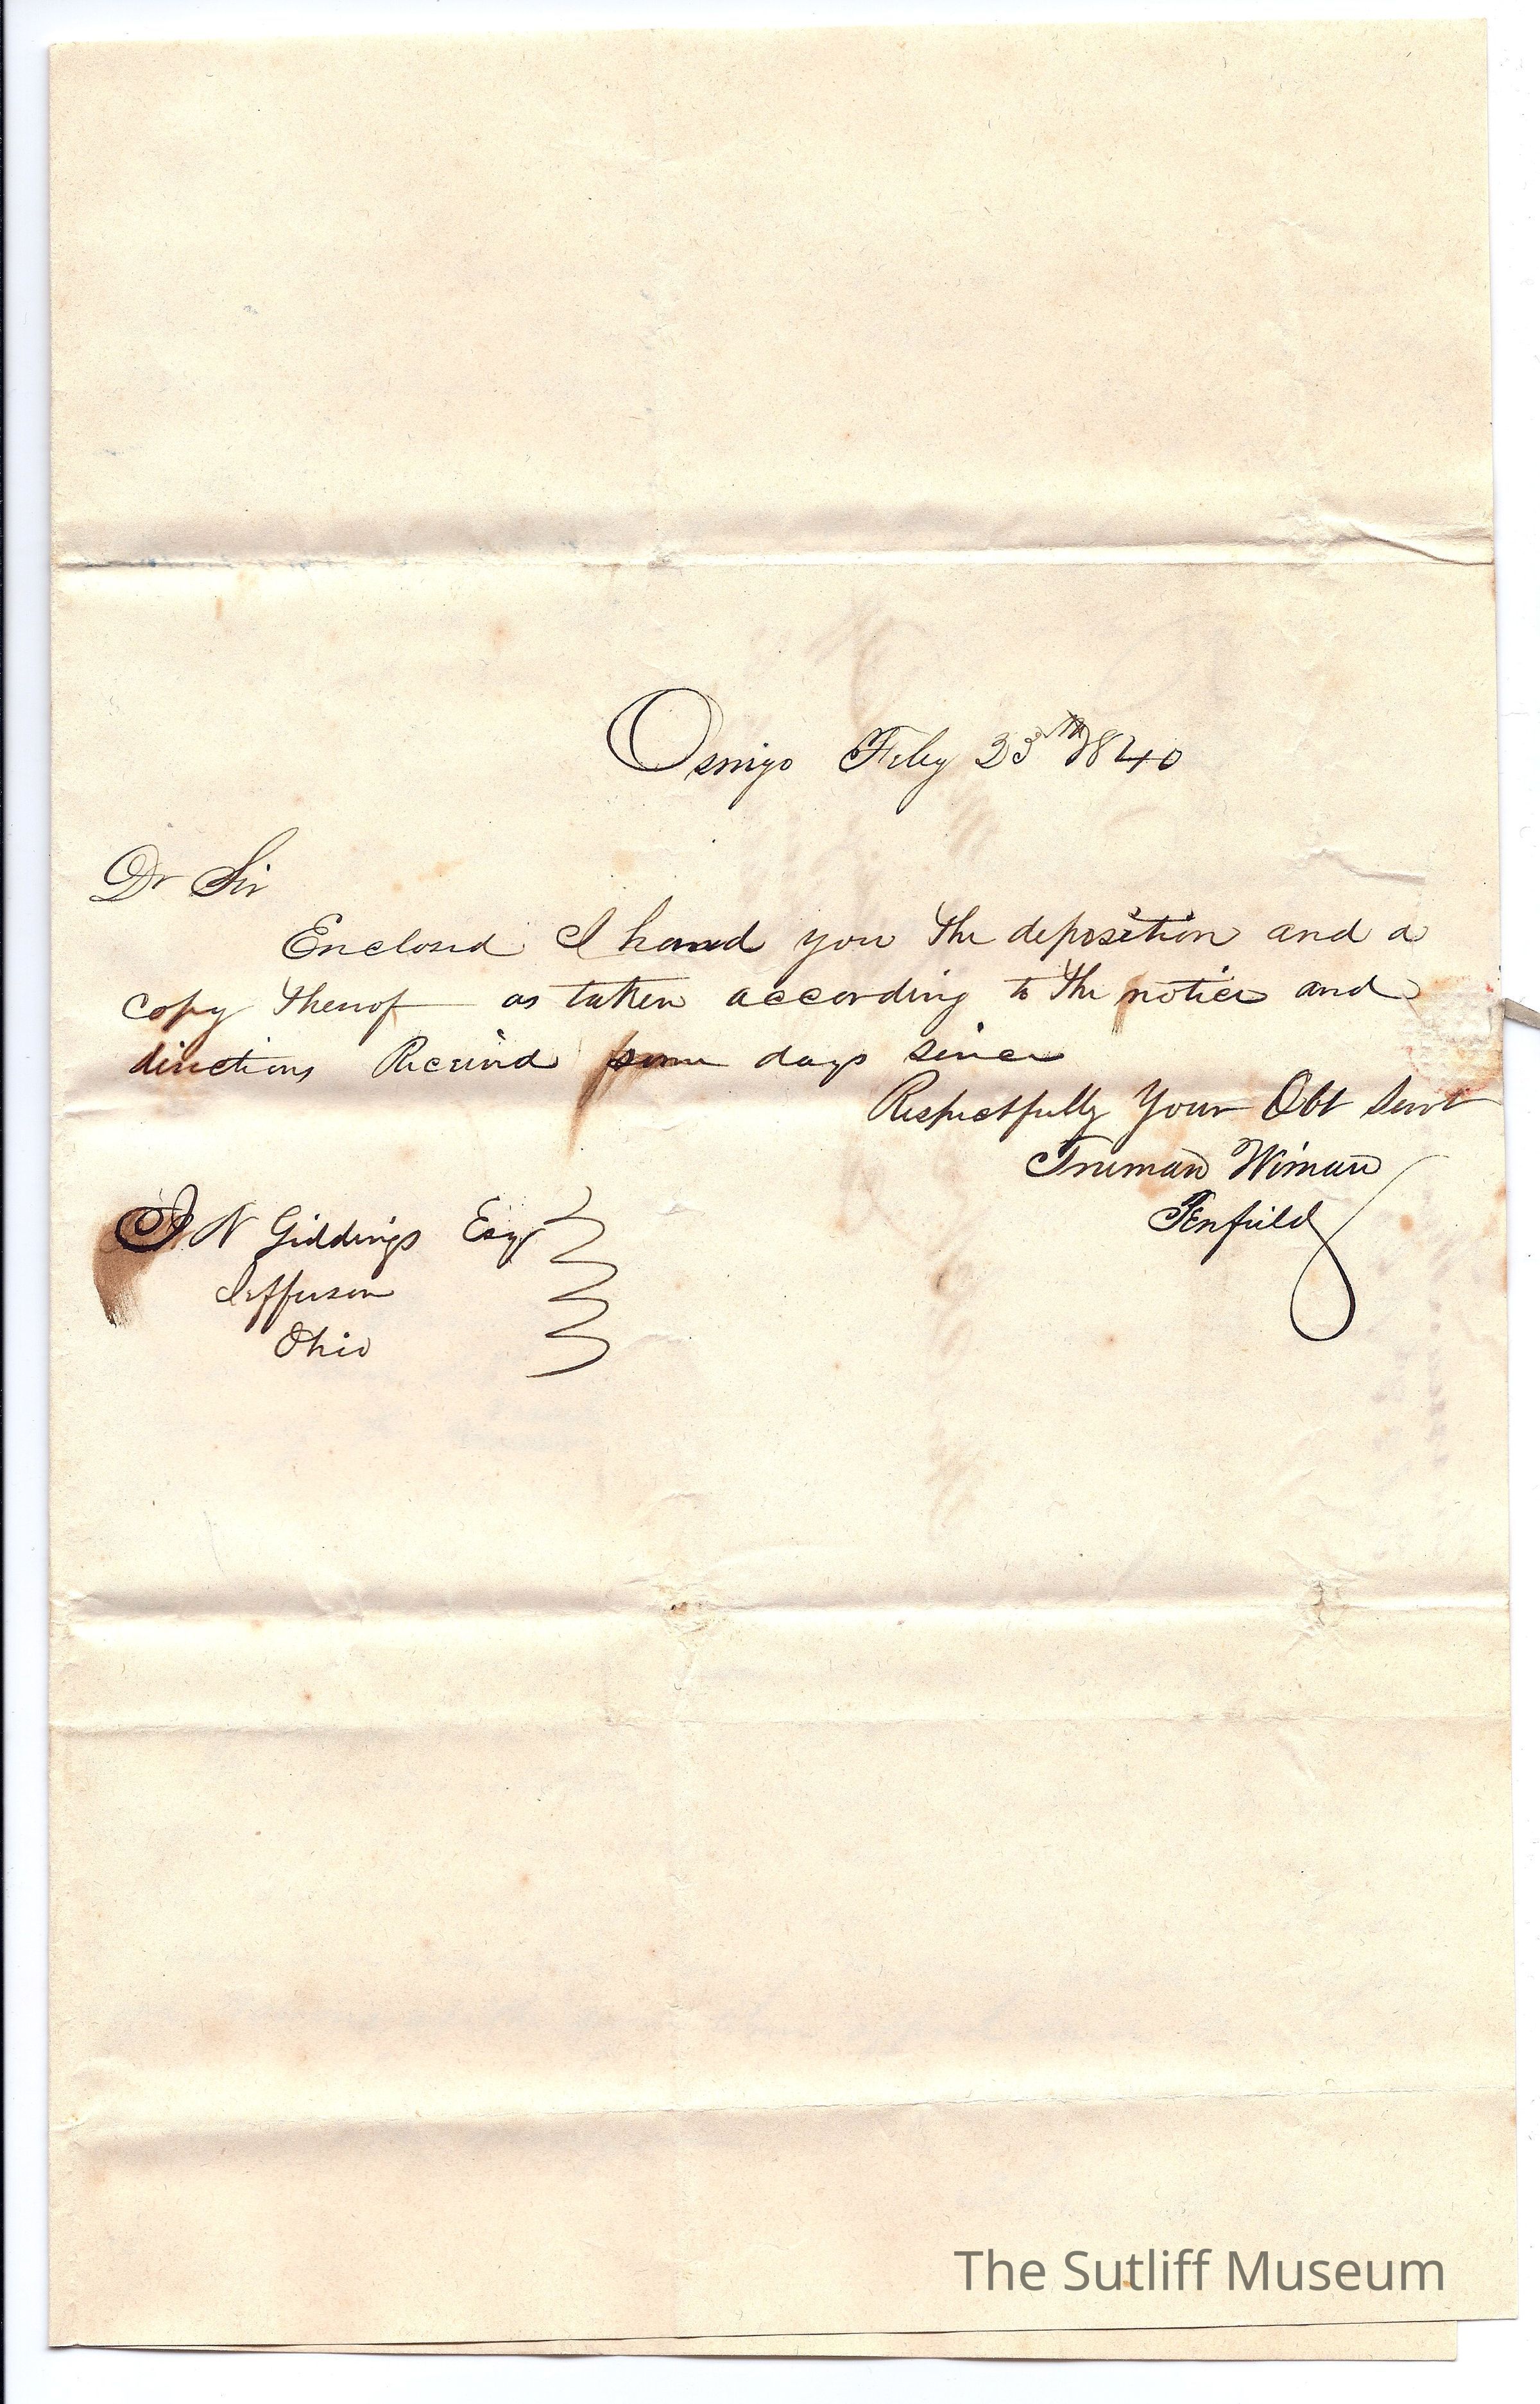 Oswego Feby 23rd 1840
Dr Sir
Enclosed I hand you the deposition and a
copy thereof as taken according to the notice and
directions Received some days since
Respectfully Your Obt Servt
Truman Wiman
Penfield
J N Giddings Esqr
Jefferson
Ohio
The Sutliff Museum